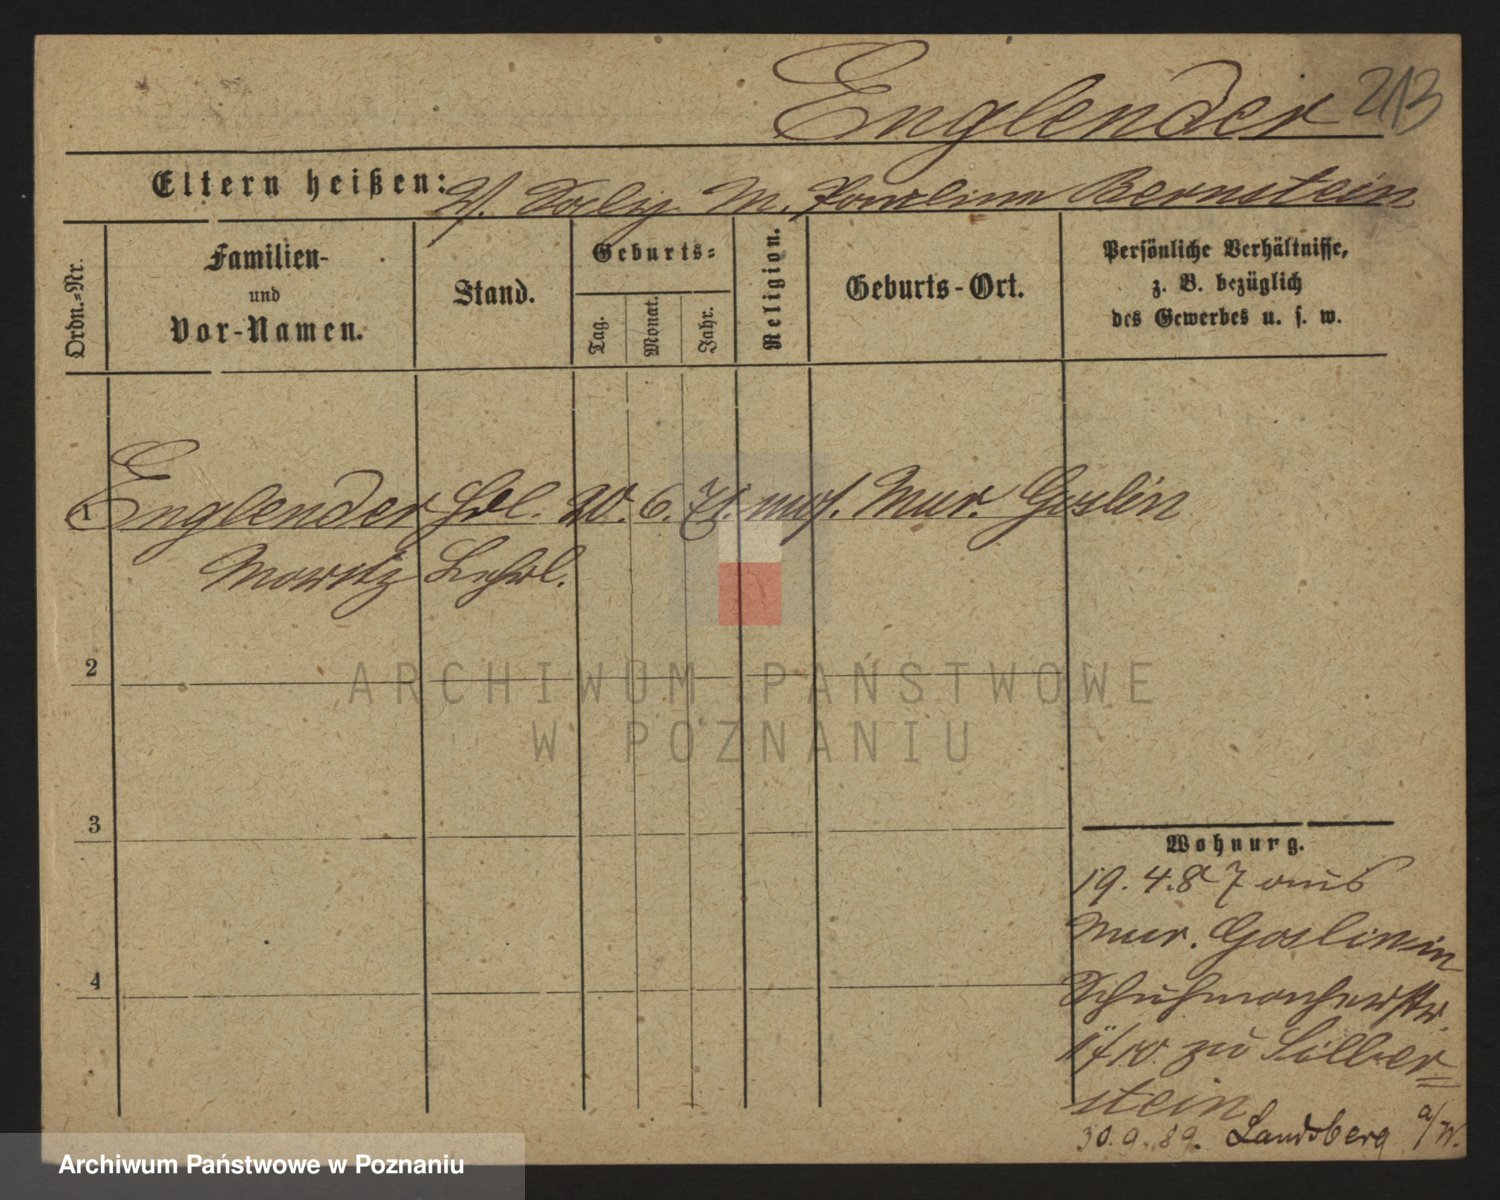 Englender 213
Eltern heißen: V. M. Paulina Bernstein
Ordn.=Nr.
Familien-
und
Vor-Namen.
Stand.
Geburts=
Tag.
Monat.
Jahr.
Religion.
Geburts-Ort.
Persönliche Verhältnisse,
z. B. bezüglich
des Gewerbes u. s. w.
1 Englender Hdl. 6. 71. mos. Mur. Goslin
Moritz Lehrl.
2
3
4
Wohnung.
19. 4. 87 aus
Mur. Goslin in
Schuhmacherstr.
zu Silber=
stein
30. 9. 89. Landsberg a/W.
ARCHIWUM PAŃSTWOWE
W POZNANIU
Archiwum Państwowe w Poznaniu